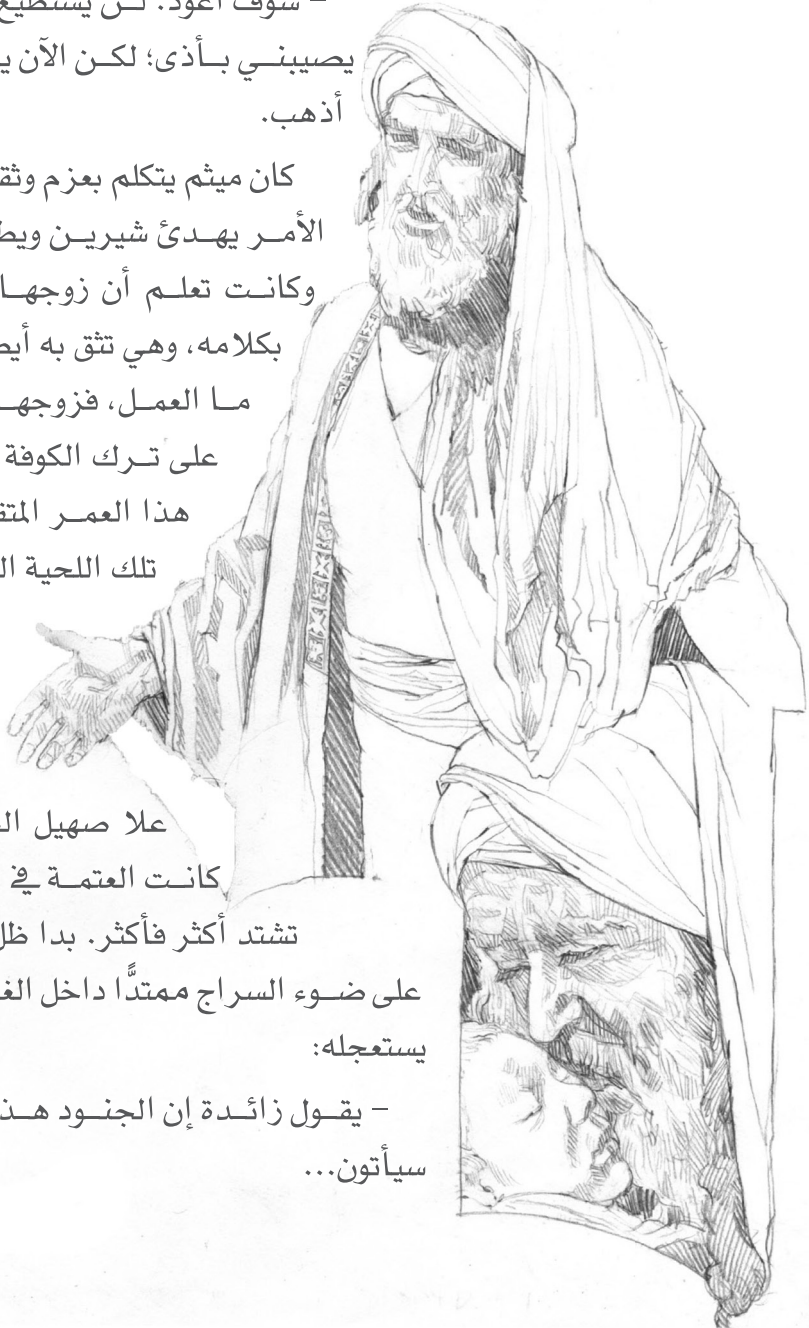 – سوف أعود. لن يستطيع
يصيبني بأذى؛ لكن الآن
أذهب.
كان ميثم يتكلم بعزم
الأمر يهدئ شيرين
وكانت تعلم أن زوجها
بكلامه، وهي تثق به
ما العمل، فزوجهـ
على ترك الكوفة
هذا العمر
تلك اللحية
علا صهيل
كانت العتمة في
تشتد أكثر فأكثر. بدا
على ضوء السراج ممتدًّا داخل
يستعجله:
– يقول زائدة إن الجنود
سيأتون...